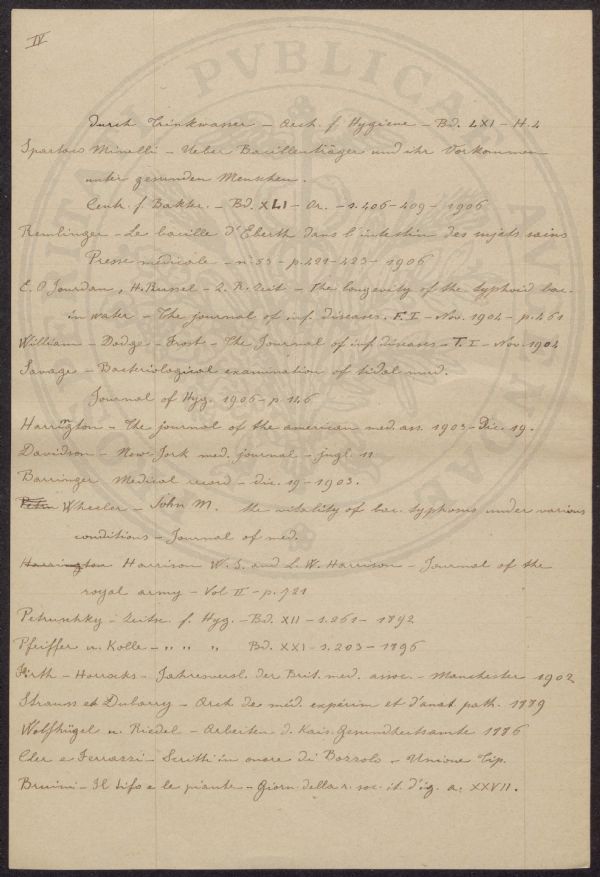 IV
durch Trinkwasser – Arch. f. Hygiene – Bd. LXI – H. 4
Spartaco Minelli – Ueber Bacillenträger und ihr Vorkommen
unter gesunden Menschen.
Centr. f. Bakter. – Bd. XLI – Or. – s. 406–409 – 1906
Remlinger – Le bacille d'Eberth dans l'intestin des sujets sains
Presse médicale – n. 53 – p. 421–423 – 1906
E. O Jourdan, H. Russel – Z. R. Zeit – The longevity of the typhoid bac.
in water – The journal of inf. diseases. T. I – Nov. 1904 – p. 461
William – Dodge – Frost – The Journal of inf. diseases – T. I – Nov. 1904
Savage – Bacteriological examination of tidal mud.
Journal of Hyg. 1905 – p. 146
Harrington – The journal of the american med. ass. 1903 – Dic. 19.
Davidson – New York med. journal – jugl. 11
Barringer Medical record – dic. 19 – 1903.
Wheeler – John M. the vitality of bac. typhosus under various
conditions – Journal of med.
Harrington Harrison W. S. and L. W. Harrison – Journal of the
royal army – Vol II – p. 721
Petruschky – Zeits. f. Hyg. – Bd. XII – s. 261 – 1892
Pfeiffer u. Kolle – " " " Bd. XXI – s. 203 – 1896
Firth – Horrocks – Jahresversl. der Brit. med. assoc. – Manchester 1902
Strauss et Dubarry – Arch de méd. expérim et d'anat path. 1889
Wolffhügel u. Riedel – Arbeiten d. Kais. Gesundheitsamte 1886
e Ferrazzi – Scritti in onore di Bozzolo – Unione Tip.
Bruini – Il tifo e le piante – Giorn. della r. soc. it. d'ig. a. XXVII.